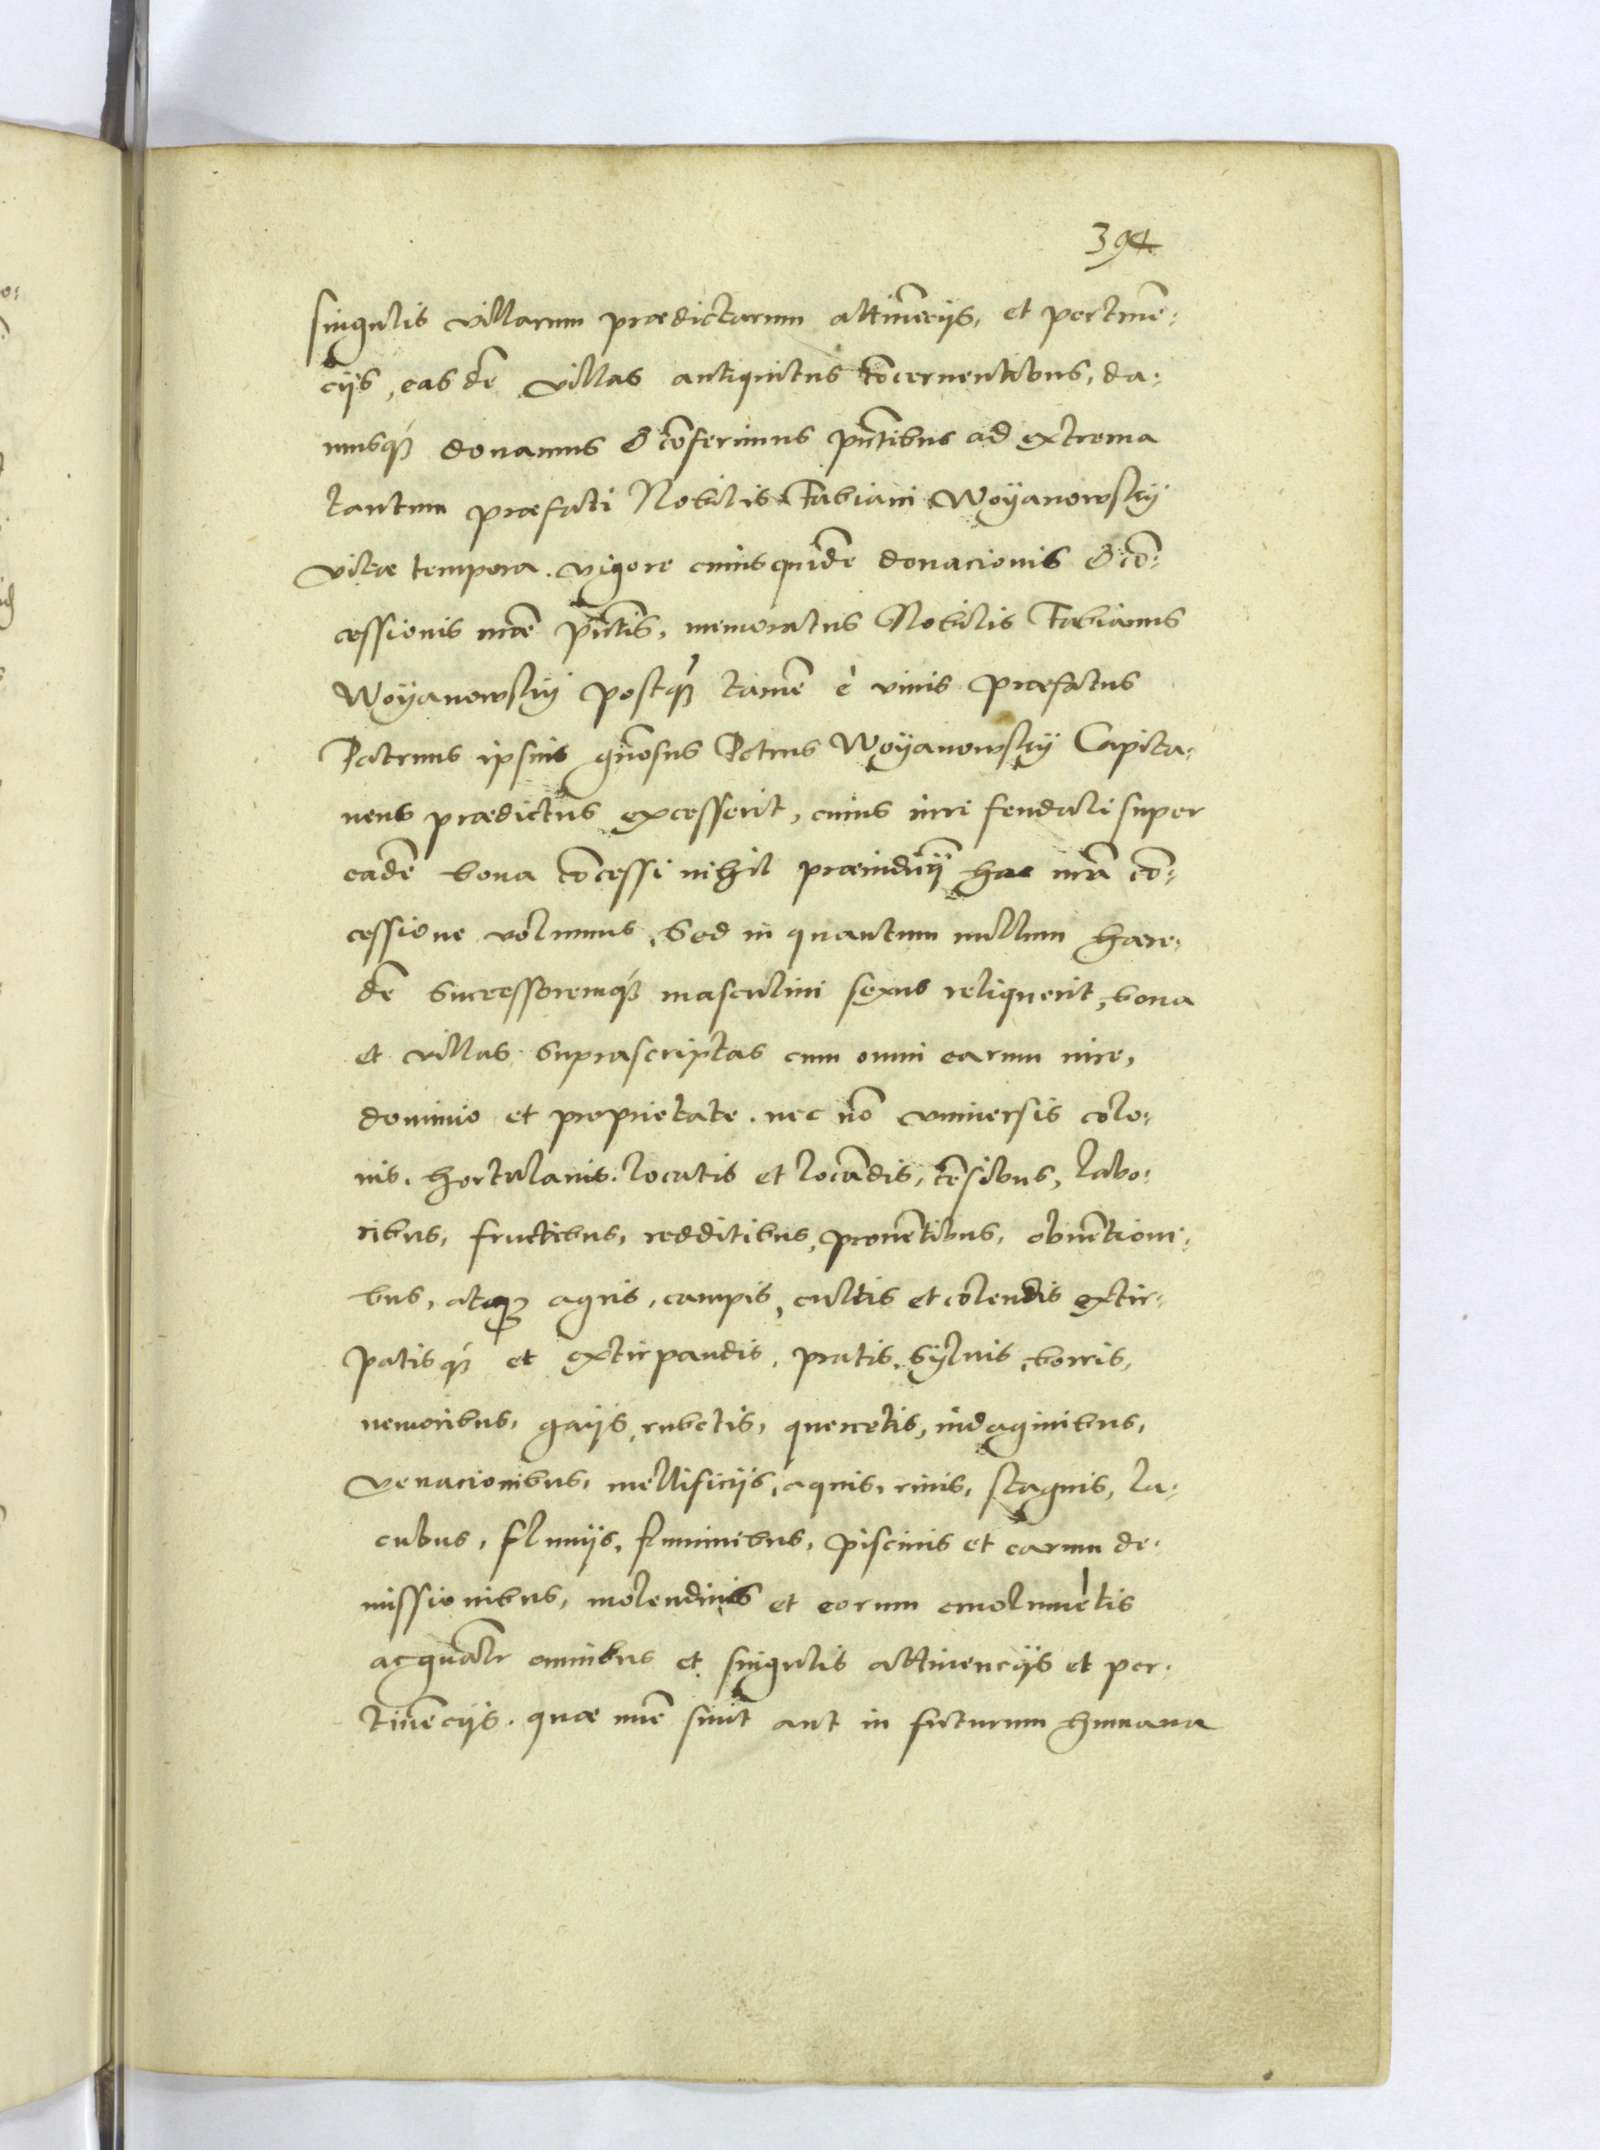 394
singulis villarum prædictarum attinēciis, et pertinē:
ciis, easdē villas antiquitus cōcernentibus, da:
musq́ꝫ donamus & cōferimus pñtibus ad extrema
tantum præfati Nobilis Fabiani Woyanowskÿ
vitæ tempora. vigore cuiusquidē donacionis & cō:
cessionis nræ pñtis, memoratus Nobilis Fabianus
Woyanowskÿ postq̃ꝫ tamē è viuis præfatus
Patruus ipsius gñosus Petrus Woyanowskÿ Capita:
neus prædictus excesserit, cuius iuri feudali super
eadē bona cōcessi nihil præiudicÿ hac nrã cō:
cessione volumus, Sed in quantum nullum hære:
dē Successoremq́ꝫ masculini sexus reliquerit, bona
et villas suprascriptas cum omni earum iure,
dominio et proprietate. nec nō vniuersis colo:
nis. hortulanis. locatis et locādis, cēsibus, labo:
ribus, fructibus, redditibus, prouētibus, obuētioni:
bus, atqꝫ agris, campis, cultis et colendis extir:
patisq́ꝫ et extirpandis, pratis, sÿluis, borris,
nemoribus, gaÿs, rubetis, quercetis, indaginibus,
venacionibus, mellificiis, aquis, riuis, stagnis, la:
cubus, fluuÿs, fluminibus, piscinis et earum de:
missionibus, molendinis et eorum emolumētis
ac gñalr omnibus et singulis attinenciis et per:
tinēciis. quæ nūc sunt aut in futurum humana